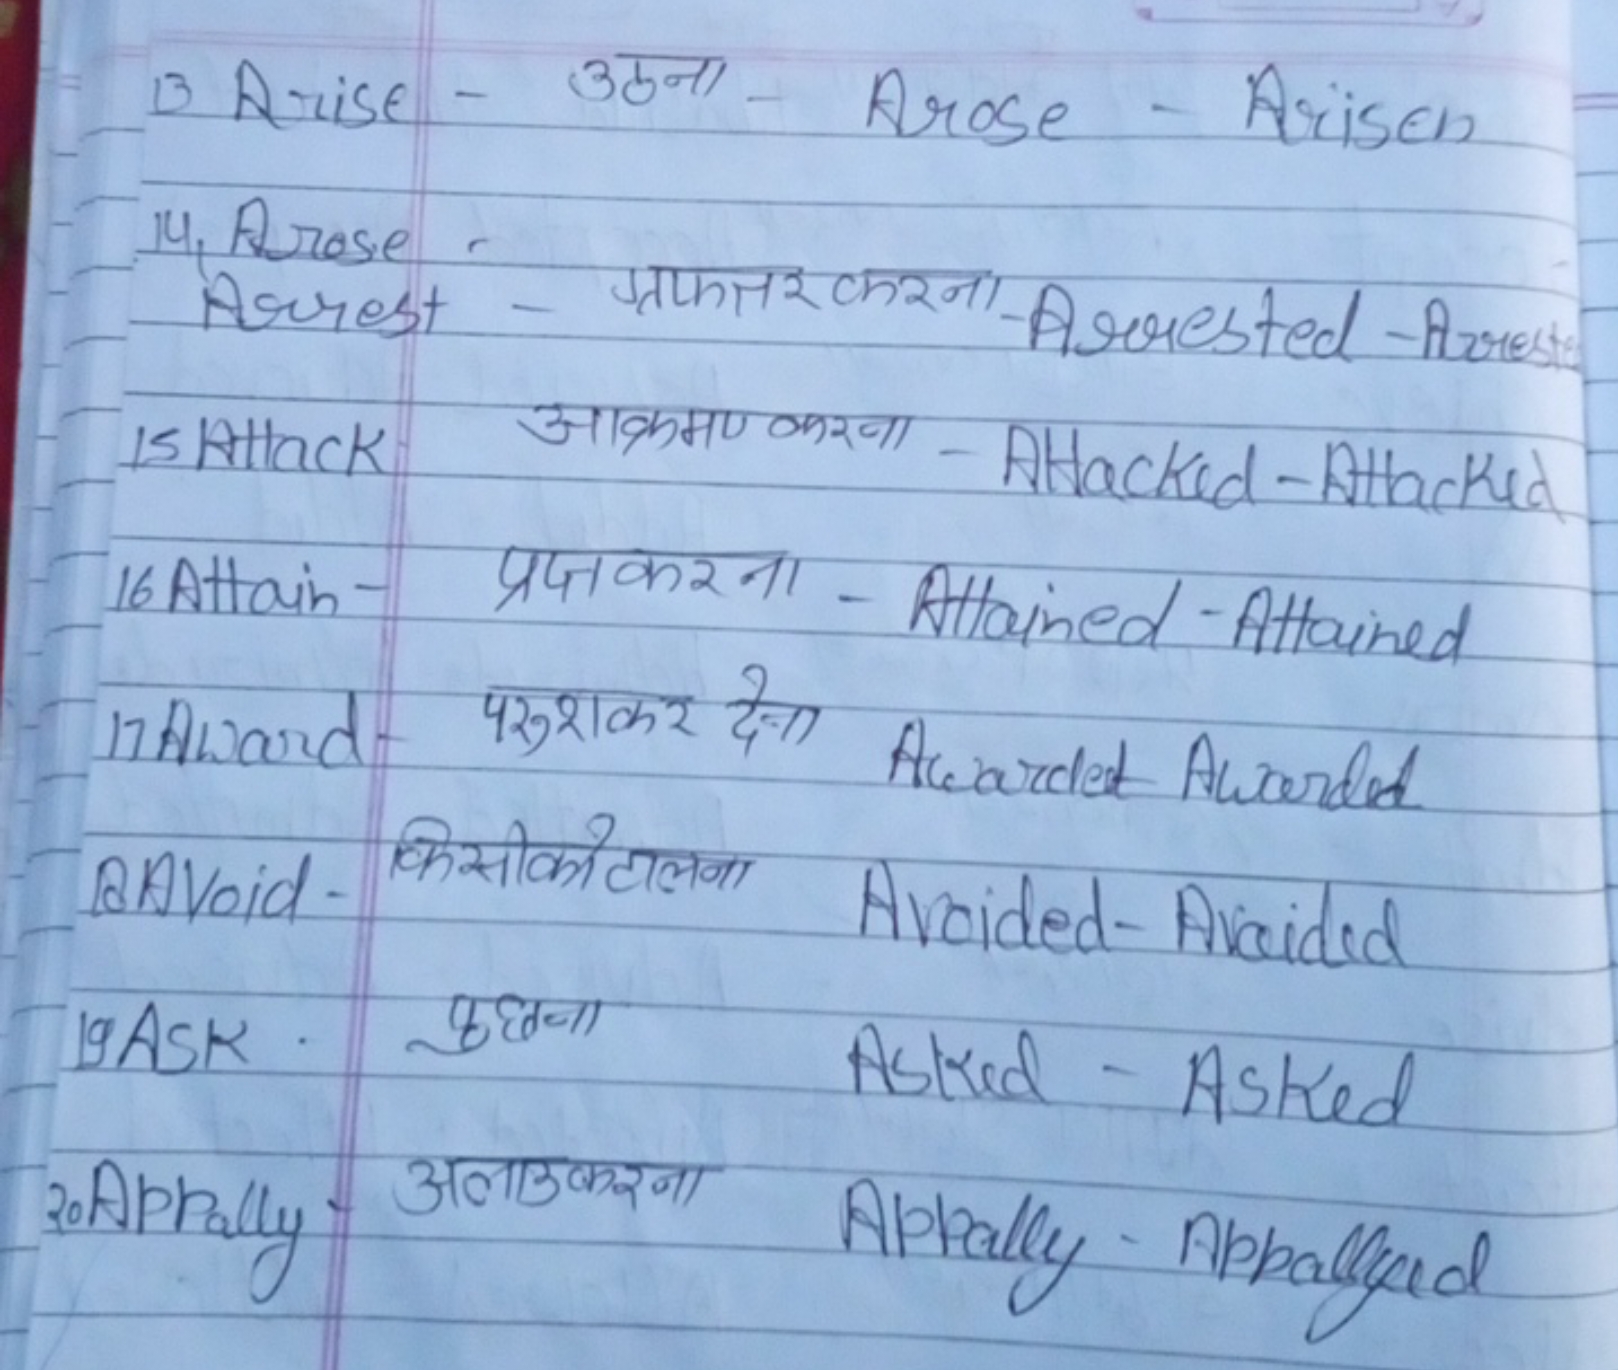 13 Arise - उठना - Arose - Arisen
14, Arose -
Arrest - ग्रफतार करना - Arrested - Arreste
15 Attack आक्रमण करना - Attacked - Attacked
16 Attain - प्रप्त करना - Attained - Attained
17 Award - परुशकर देना Awarded Awarded
18 Avoid - किसी को टालना Avoided - Avoided
19 Ask . पुछना Asked - Asked
20 Appally - अलाउ करना Appally - Appallyed